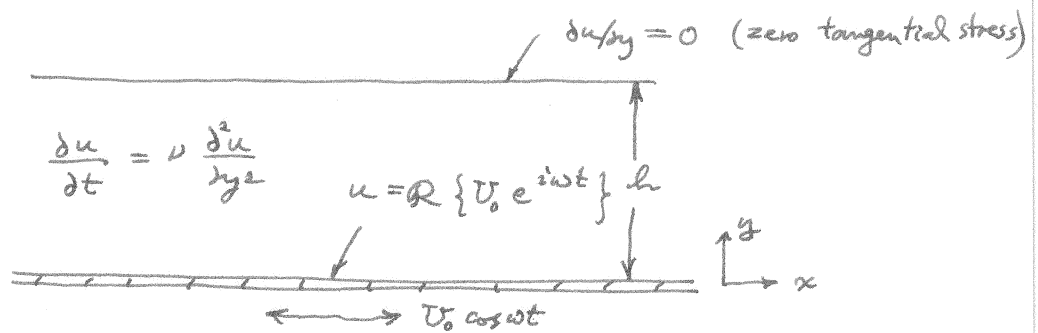 ∂u/∂y = 0 (zero tangential stress)
∂u/∂t = ν ∂²u/∂y²
u = R {U₀ e^{iωt}}
h
y
x
U₀ cos ωt